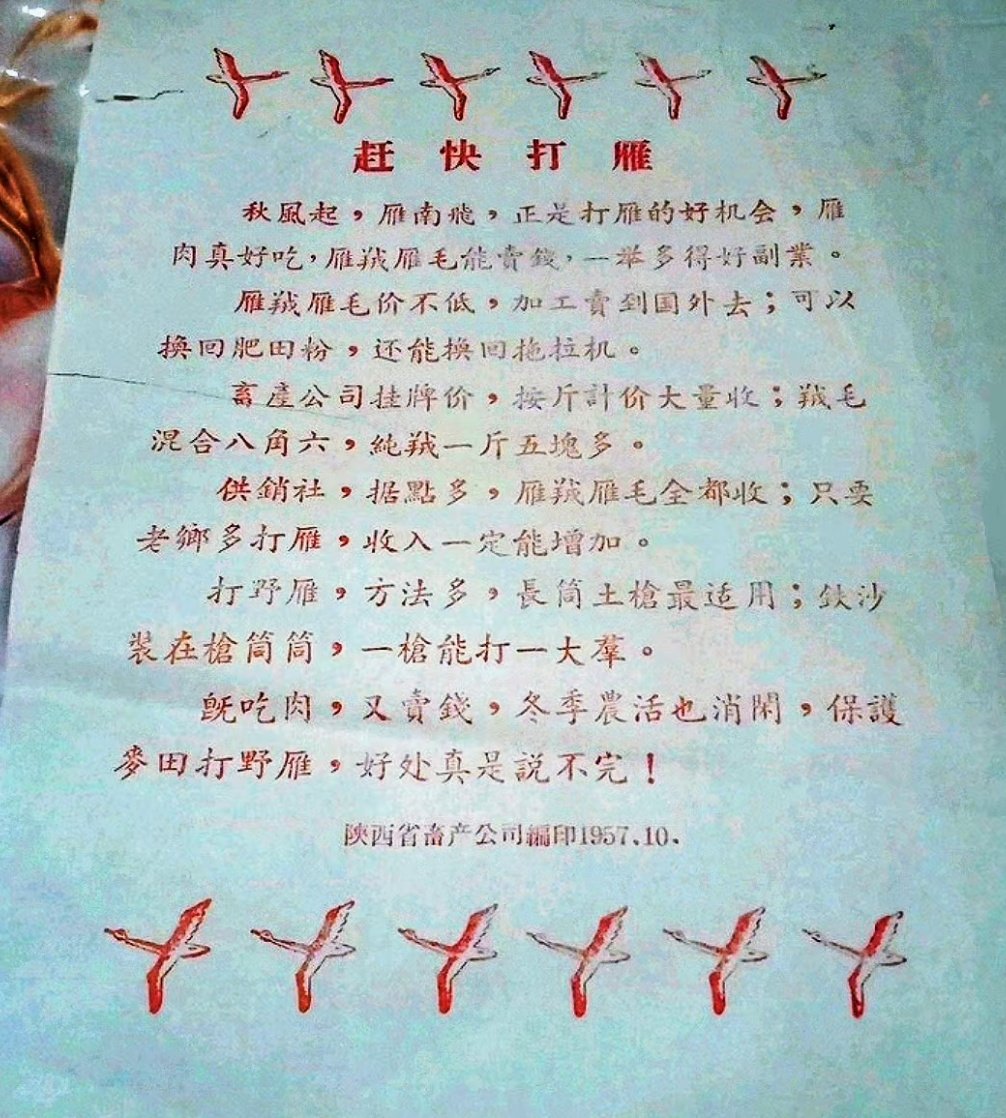 赶快打雁
秋風起，雁南飛，正是打雁的好机会，雁
肉真好吃，雁羢雁毛能賣錢，一举多得好副業。
雁羢雁毛价不低，加工賣到国外去；可以
換回肥田粉，还能換回拖拉机。
畜產公司挂牌价，按斤計价大量收；羢毛
混合八角六，純羢一斤五塊多。
供銷社，据點多，雁羢雁毛全都收；只要
老鄉多打雁，收入一定能增加。
打野雁，方法多，長筒土槍最适用；鉄沙
装在槍筒筒，一槍能打一大羣。
既吃肉，又賣錢，冬季農活也消閑，保護
麥田打野雁，好处真是説不完！
陝西省畜产公司編印1957.10.